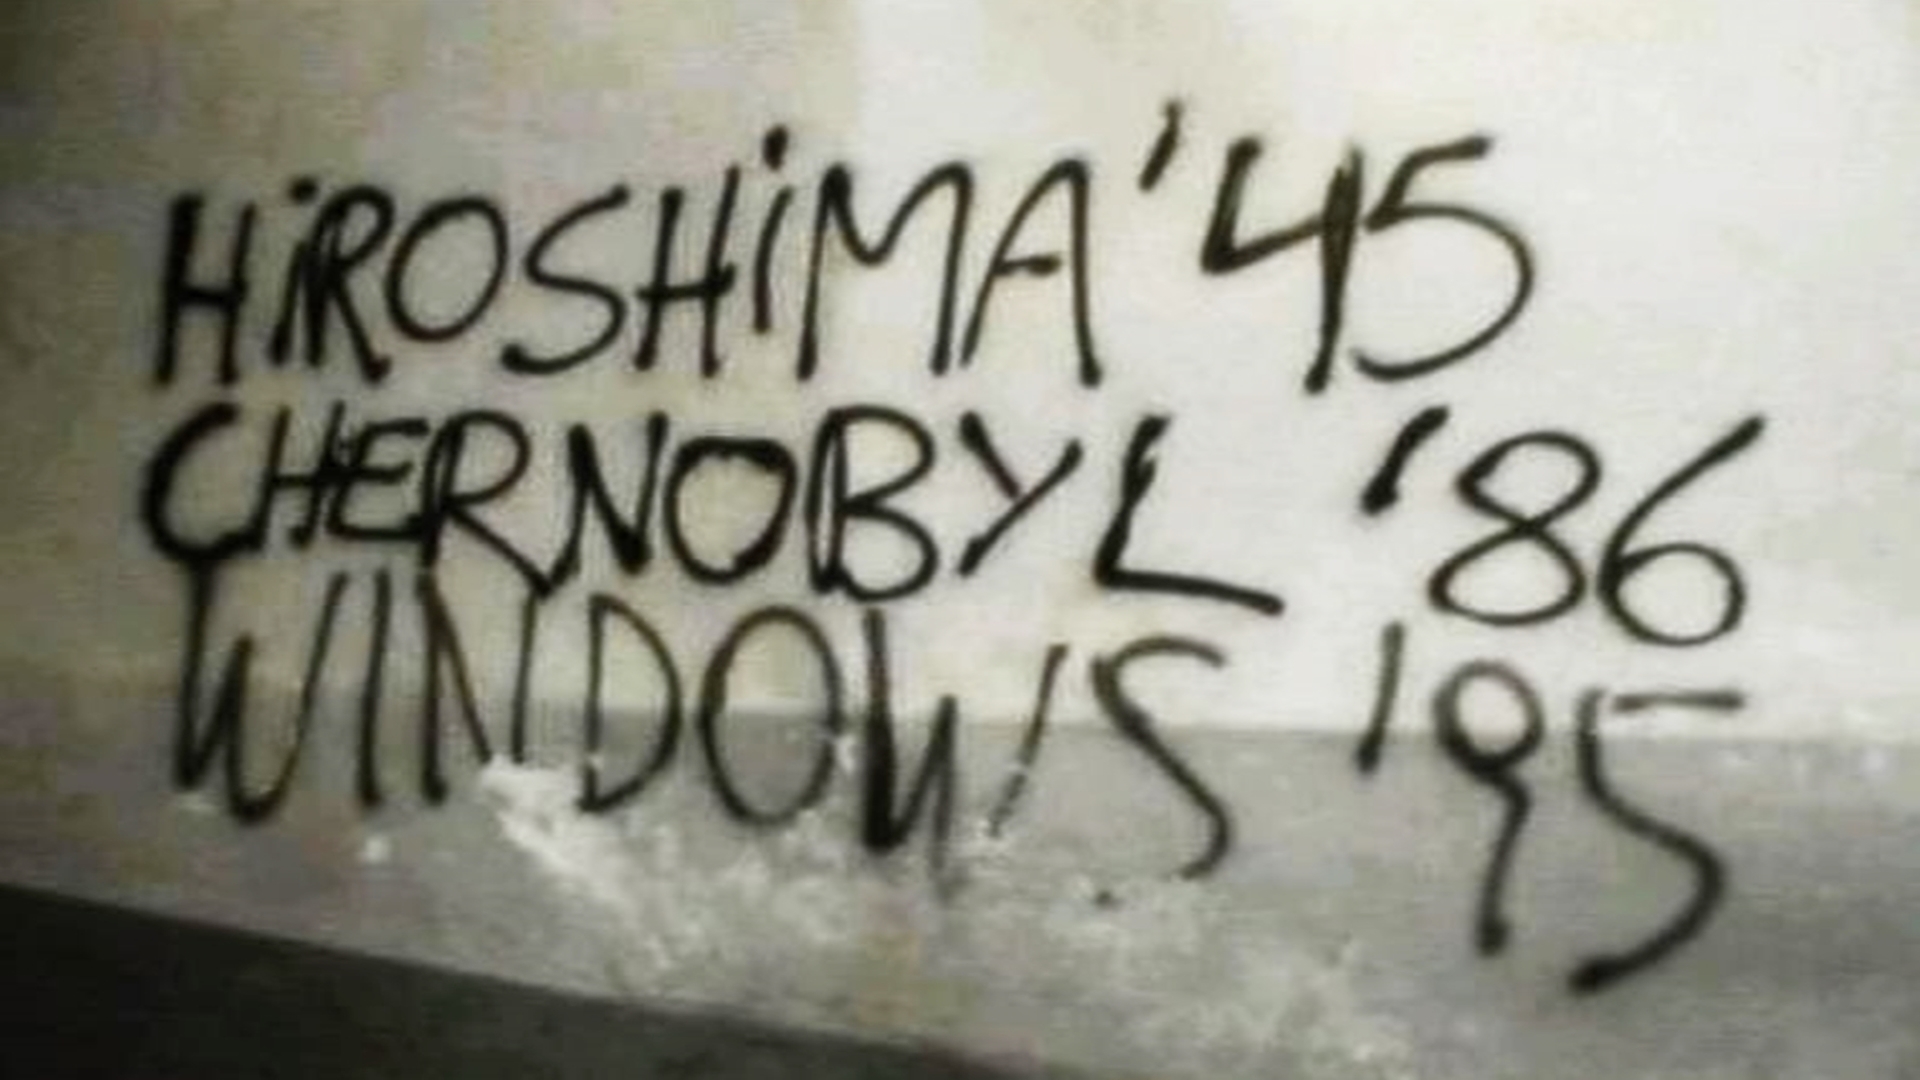 HiROSHiMA '45
CHERNOBYL '86
WINDOWS '95